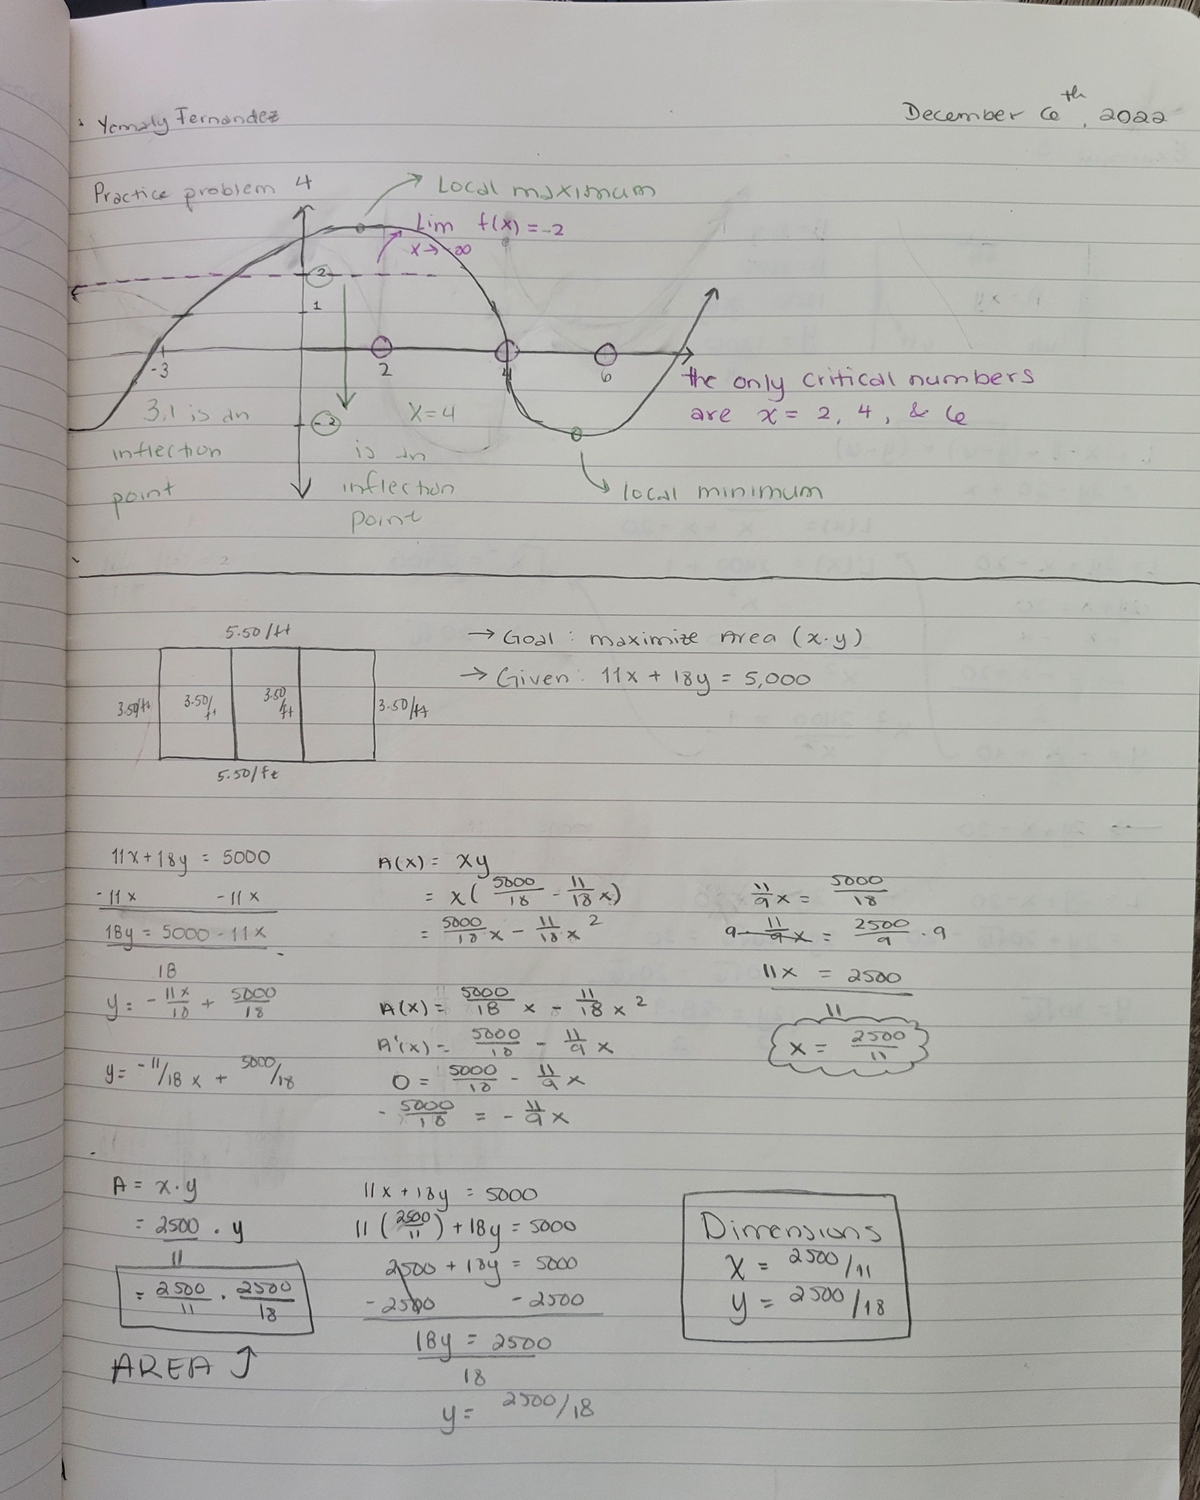 Yomaly Fernandez
December 6th, 2022
Practice problem 4
Local maximum
Lim f(x) = -2
x → -∞
2
1
-3
2
4
6
the only critical numbers
are x = 2, 4, & 6
3,1 is an
inflection
point
-2
x=4
is an
inflection
point
local minimum
5.50/ft
3.50/ft
3.50/ft
3.50/ft
3.50/ft
5.50/ft
→ Goal: maximize Area (x·y)
→ Given: 11x + 18y = 5,000
11x+18y = 5000
-11x -11x
18y = 5000 - 11x
18
y = - 11x/18 + 5000/18
y = -11/18 x + 5000/18
A(x) = xy
= x( 5000/18 - 11/18 x)
= 5000/18 x - 11/18 x²
A(x) = 5000/18 x - 11/18 x²
A'(x) = 5000/18 - 11/9 x
0 = 5000/18 - 11/9 x
- 5000/18 = - 11/9 x
11/9 x = 5000/18
9 · 11/9 x = 2500/9 · 9
11x = 2500
11
x = 2500/11
A = x·y
= 2500/11 · y
= 2500/11 · 2500/18
AREA
11x + 18y = 5000
11 (2500/11) + 18y = 5000
2500 + 18y = 5000
-2500 -2500
18y = 2500
18
y = 2500/18
Dimensions
x = 2500/11
y = 2500/18